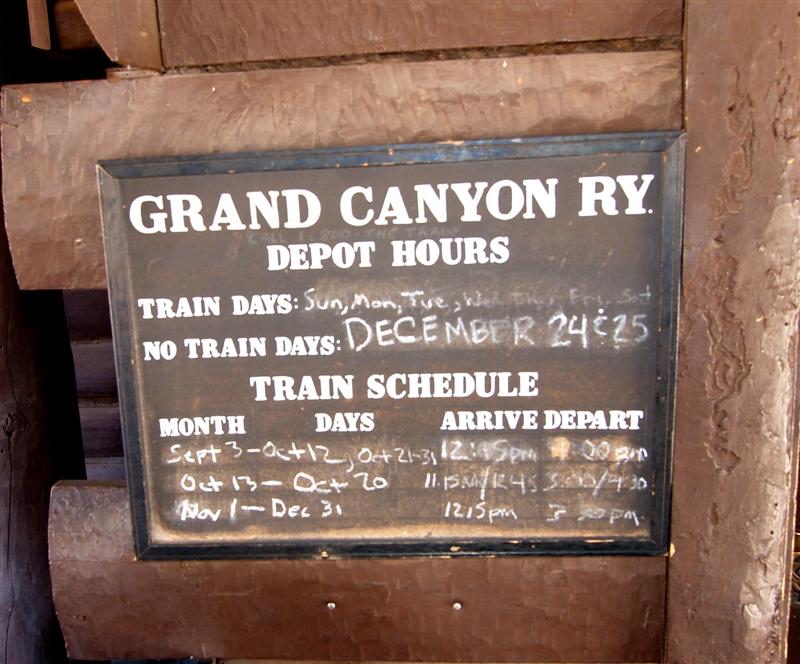 GRAND CANYON RY.
CALL 1-800-THE TRAIN
DEPOT HOURS
TRAIN DAYS: Sun, Mon, Tue, Wed, Thu, Fri, Sat
NO TRAIN DAYS: DECEMBER 24 & 25
TRAIN SCHEDULE
MONTH DAYS ARRIVE DEPART
Sept 3-Oct 12, Oct 21-31 12:15pm
Oct 13-Oct 20 3:00/4:30
Nov 1-Dec 31 12:15pm